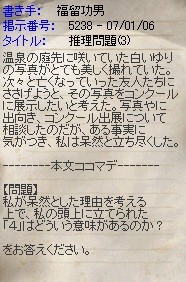 書き手: 福留功男
掲示番号: 5238 - 07/01/06
タイトル: 推理問題(3)
温泉の庭先に咲いていた白いゆり
の写真がとても美しく撮れていた。
次々と亡くなっていった友人たちに
ささげようと、その写真をコンクール
に展示したいと考えた。写真やに
出向き、コンクール出展について
相談したのだが、ある事実に
気がつき、私は呆然と立ち尽くした。
--------本文ココマデ-------
【問題】
私が呆然とした理由を考える
上で、私の頭上に立てられた
「4」はどういう意味があるのか?
をお答えください。